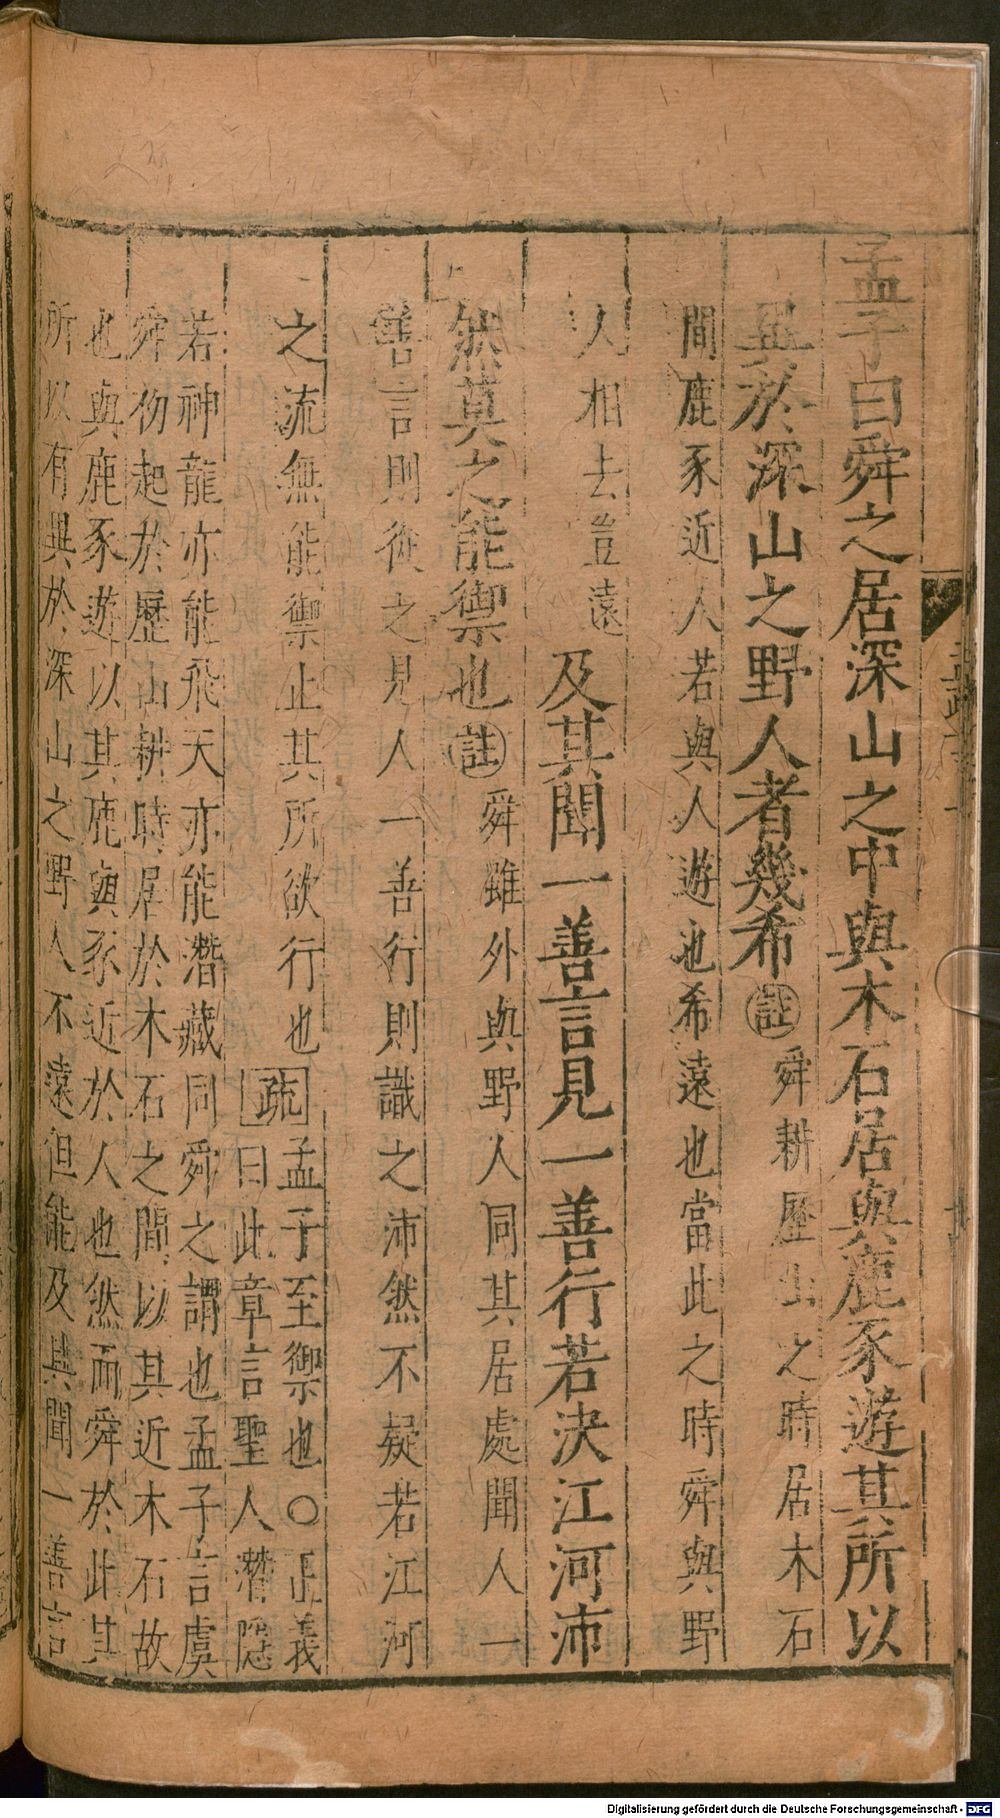 孟子曰舜之居深山之中與木石居與鹿豕遊其所以
異於深山之野人者幾希
註
舜耕歷山之時居木石
間鹿豕近人若與人遊也希遠也當此之時舜與野
人相去豈遠
及其聞一善言見一善行若決江河沛
然莫之能禦也
註
舜雖外與野人同其居處聞人一
善言則從之見人一善行則識之沛然不疑若江河
之流無能禦止其所欲行也
疏
孟子至禦也〇正義
曰此章言聖人潛隱
若神龍亦能飛天亦能潛藏同舜之謂也孟子言虞
舜初起於歷山耕時居於木石之間以其近木石故
也與鹿豕遊以其鹿與豕近於人也然而舜於此其
所以有異於深山之野人不遠但能及其聞一善言
Digitalisierung gefördert durch die Deutsche Forschungsgemeinschaft - DFG